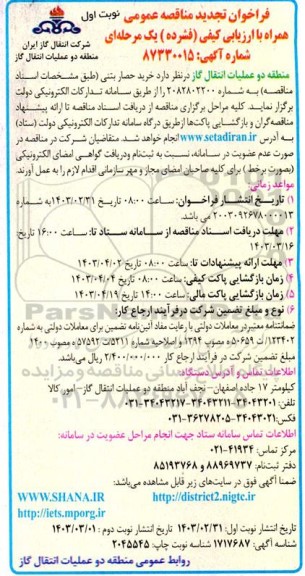 نوبت اول
فراخوان تجدید مناقصه عمومی
همراه با ارزیابی کیفی (فشرده) یک مرحله‌ای
شماره آگهی: ۸۷۳۳۰۰۱۵
شرکت انتقال گاز ایران
منطقه دو عملیات انتقال گاز
منطقه دو عملیات انتقال گاز درنظر دارد خرید حصار بتنی (طبق مشخصات اسناد
مناقصه) به شماره ۲۰۸۲۸۰۲۲۰۰ را از طریق سامانه تدارکات الکترونیکی دولت
برگزار نمایند. کلیه مراحل برگزاری مناقصه از دریافت اسناد مناقصه تا ارائه پیشنهاد
مناقصه‌گران و بازگشایی پاکت‌ها ازطریق درگاه سامانه تدارکات الکترونیکی دولت (ستاد)
به آدرس www.setadiran.ir انجام خواهد شد. متقاضیان شرکت در مناقصه در
صورت عدم عضویت در سامانه، نسبت به ثبت‌نام ودریافت گواهی امضای الکترونیکی
(بصورت برخط) برای کلیه صاحبان امضای مجاز و مهر سازمانی اقدام لازم را به عمل آورند.
مواعد زمانی:
۱) تاریخ انتشار فراخوان: ساعت ۰۸:۰۰ تاریخ ۱۴۰۳/۰۲/۳۱ به شماره
۲۰۰۳۰۹۲۶۷۸۰۰۰۰۱۳ می باشد.
۲) مهلت دریافت اسناد مناقصه از سامانه ستاد تا: ساعت ۱۶:۰۰ تاریخ:
۱۴۰۳/۰۳/۱۶
۳) مهلت ارائه پیشنهادات تا: ساعت ۰۸:۰۰ تاریخ ۱۴۰۳/۰۴/۰۲
۴) زمان بازگشایی پاکت کیفی: ساعت ۰۸:۰۰ تاریخ ۱۴۰۳/۰۴/۰۴
۵) زمان بازگشایی پاکت مالی: ساعت ۱۴:۰۰ تاریخ ۱۴۰۳/۰۴/۱۹
۶) نوع و مبلغ تضمین شرکت درفرآیند ارجاع کار:
ضمانتنامه معتبر در معاملات دولتی با رعایت مفاد آئین‌نامه تضمین برای معاملات دولتی به شماره
۱۲۳۴۰۲/ت ۵۰۶۵۹ ه مصوب ۱۳۹۴ و اصلاحیه شماره (۵۲۱۱/ت ۵۷۵۹۲ ه مصوب ۱۴۰۰
مبلغ تضمین شرکت در فرآیند ارجاع کار ۲/۴۰۰/۰۰۰/۰۰۰ ریال می‌باشد.
اطلاعات تماس و آدرس دستگاه:
کیلومتر ۱۷ جاده اصفهان- نجف آباد منطقه دو عملیات انتقال گاز- امور کالا
تلفن: ۳۴۰۴۳۲۰۱-۳۴۰۴۳۲۱۱-۳۴۰۴۳۲۱۷-۰۳۱
فکس: ۳۴۰۴۳۰۲۱-۳۶۲۷۸۲۰۵-۰۳۱
اطلاعات تماس سامانه ستاد جهت انجام مراحل عضویت در سامانه:
مرکز تماس: ۴۱۹۳۴-۰۲۱
دفتر ثبت‌نام: ۸۸۹۶۹۷۳۷ و ۸۵۱۹۳۷۶۸
ضمنا آگهی فوق در سایت‌های زیر قابل مشاهده می‌باشد:
http://district2.nigtc.ir WWW.SHANA.IR
http://iets.mporg.ir
تاریخ انتشار نوبت اول: ۱۴۰۳/۰۲/۳۱ تاریخ انتشار نوبت دوم : ۱۴۰۳/۰۳/۰۱
شناسه آگهی نوبت اول ۱۷۱۷۶۸۷ شناسه نوبت چاپ: ۲۰۴۵۵۴۵
روابط عمومی منطقه دو عملیات انتقال گاز